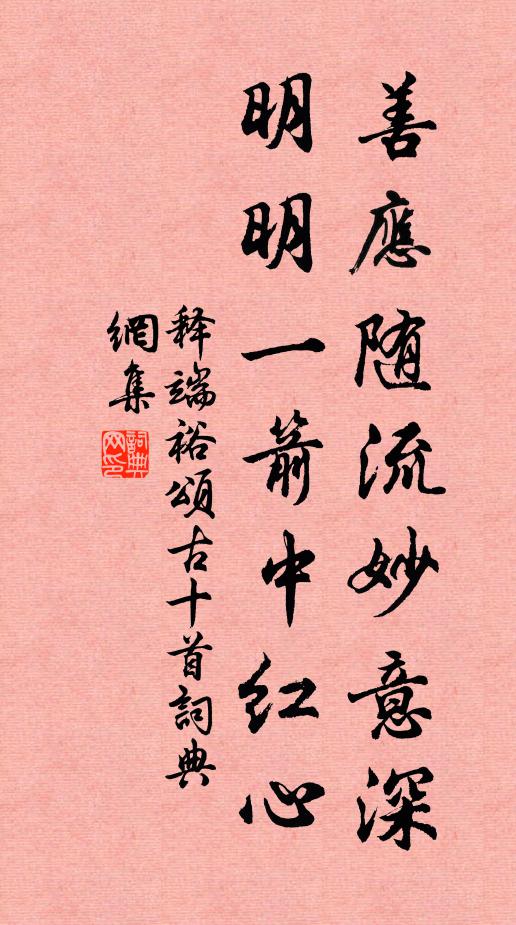 善應随流妙意深
明明一箭中红心
释端裕頌古十首詞典
網集
詞典
网印